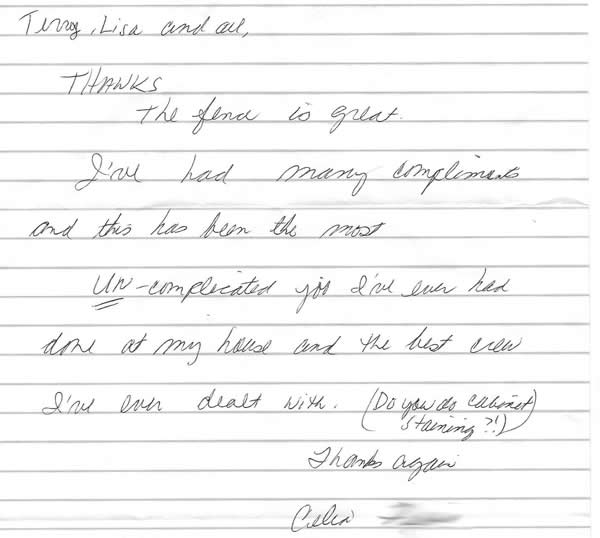 Terry, Lisa and all,
THANKS
The fence is great.
I've had many compliments
and this has been the most
UN-complicated job I've ever had
done at my house and the best crew
I've ever dealt with. (Do you do cabinet
staining?!)
Thanks again
Celia